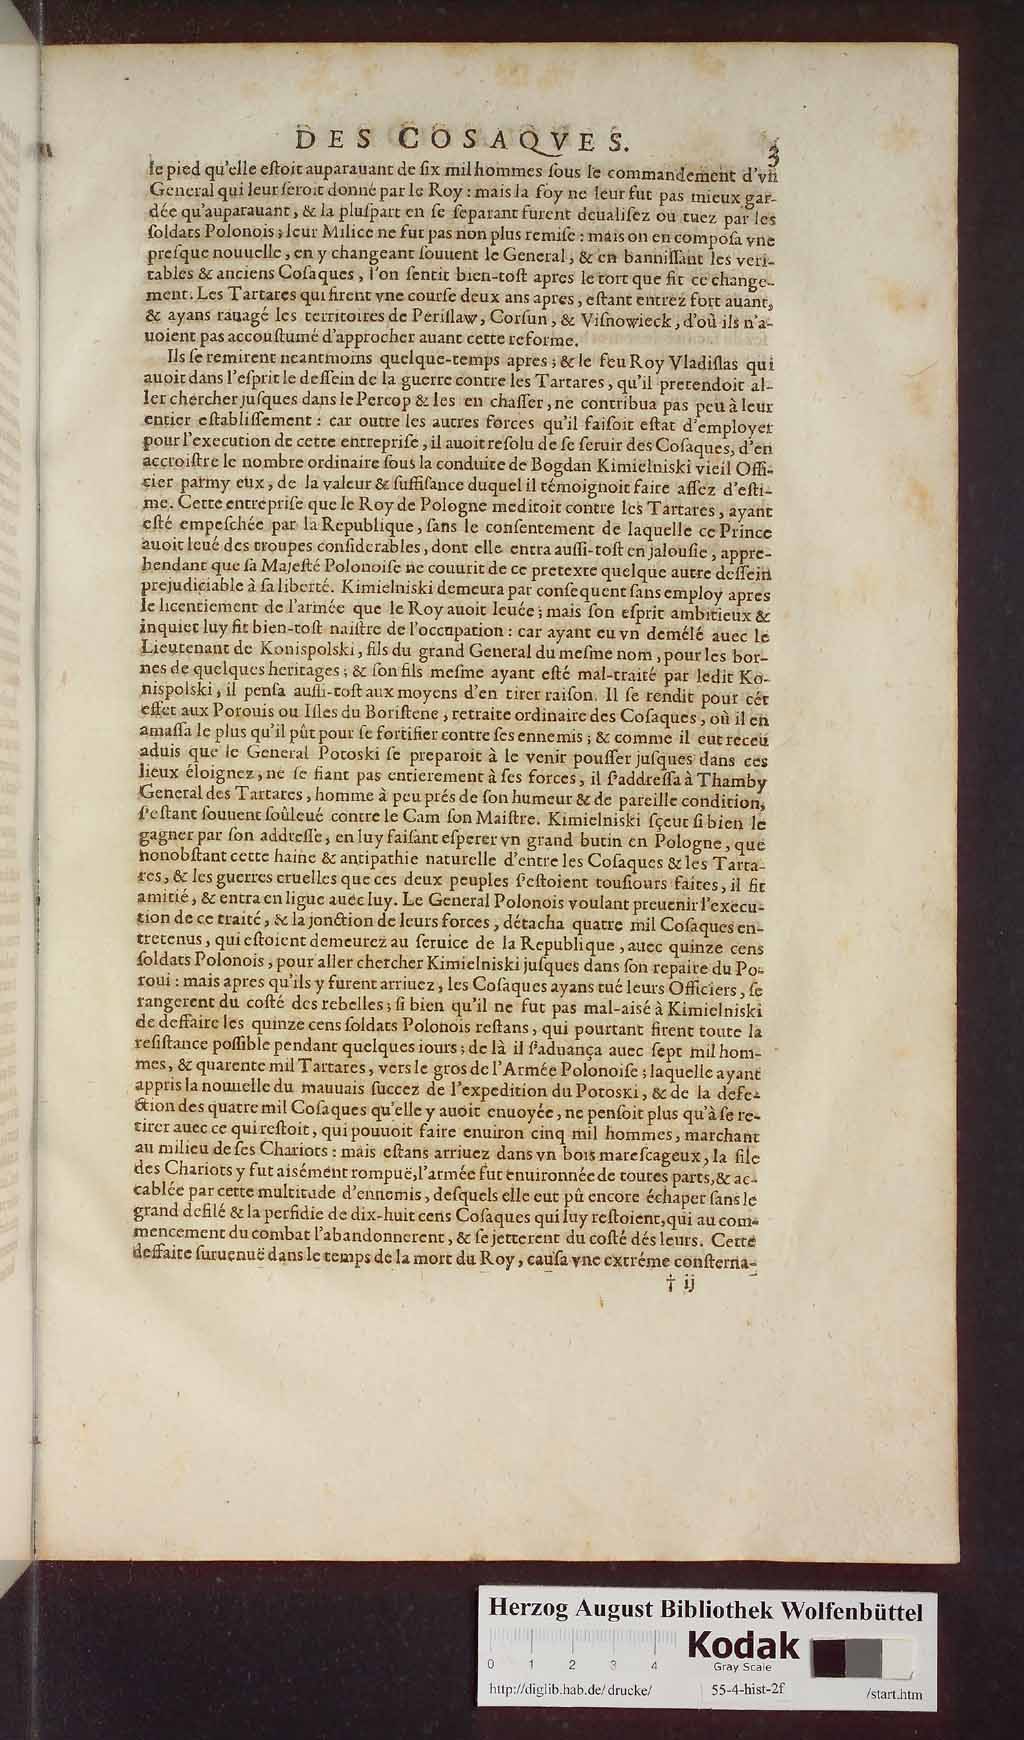 DES COSAQVES.
3
le pied qu'elle eſtoit auparauant de ſix mil hommes ſous le commandement d'vn
General qui leur ſeroit donné par le Roy : mais la foy ne leur fut pas mieux gar-
dée qu'auparauant, & la pluſpart en ſe ſeparant furent deualiſez ou tuez par les
ſoldats Polonois ; leur Milice ne fut pas non plus remiſe : mais on en compoſa vne
preſque nouuelle, en y changeant ſouuent le General, & en banniſſant les veri-
tables & anciens Coſaques, l'on ſentit bien-toſt apres le tort que fit ce change-
ment. Les Tartares qui firent vne courſe deux ans apres, eſtant entrez fort auant,
& ayans rauagé les territoires de Periſlaw, Corſun, & Viſnowieck, d'où ils n'a-
uoient pas accouſtumé d'approcher auant cette reforme.
Ils ſe remirent neantmoins quelque-temps apres ; & le feu Roy Vladiſlas qui
auoit dans l'eſprit le deſſein de la guerre contre les Tartares, qu'il pretendoit al-
ler chercher juſques dans le Percop & les en chaſſer, ne contribua pas peu à leur
entier eſtabliſſement : car outre les autres forces qu'il faiſoit eſtat d'employer
pour l'execution de cette entrepriſe, il auoit reſolu de ſe ſeruir des Coſaques, d'en
accroiſtre le nombre ordinaire ſous la conduite de Bogdan Kimielniski vieil Offi-
cier parmy eux, de la valeur & ſuffiſance duquel il témoignoit faire aſſez d'eſti-
me. Cette entrepriſe que le Roy de Pologne meditoit contre les Tartares, ayant
eſté empeſchée par la Republique, ſans le conſentement de laquelle ce Prince
auoit leué des troupes conſiderables, dont elle entra auſſi-toſt en jalouſie, appre-
hendant que ſa Majeſté Polonoiſe ne couurit de ce pretexte quelque autre deſſein
prejudiciable à ſa liberté. Kimielniski demeura par conſequent ſans employ apres
le licentiement de l'armée que le Roy auoit leuée ; mais ſon eſprit ambitieux &
inquiet luy fit bien-toſt naiſtre de l'occupation : car ayant eu vn demélé auec le
Lieutenant de Konispolski, fils du grand General du meſme nom, pour les bor-
nes de quelques heritages ; & ſon fils meſme ayant eſté mal-traité par ledit Ko-
nispolski, il penſa auſſi-toſt aux moyens d'en tirer raiſon. Il ſe rendit pour cét
effet aux Porouis ou Iſles du Boriſtene, retraite ordinaire des Coſaques, où il en
amaſſa le plus qu'il pût pour ſe fortifier contre ſes ennemis ; & comme il eut receu
aduis que le General Potoski ſe preparoit à le venir pouſſer juſques dans ces
lieux éloignez, ne ſe fiant pas entierement à ſes forces, il ſ'addreſſa à Thamby
General des Tartares, homme à peu prés de ſon humeur & de pareille condition,
ſ'eſtant ſouuent ſoûleué contre le Cam ſon Maiſtre. Kimielniski ſçeut ſi bien le
gagner par ſon addreſſe, en luy faiſant eſperer vn grand butin en Pologne, que
nonobſtant cette haine & antipathie naturelle d'entre les Coſaques & les Tarta-
res, & les guerres cruelles que ces deux peuples ſ'eſtoient touſiours faites, il fit
amitié, & entra en ligue auec luy. Le General Polonois voulant preuenir l'execu-
tion de ce traité, & la jonction de leurs forces, détacha quatre mil Coſaques en-
tretenus, qui eſtoient demeurez au ſeruice de la Republique, auec quinze cens
ſoldats Polonois, pour aller chercher Kimielniski juſques dans ſon repaire du Po-
roui : mais apres qu'ils y furent arriuez, les Coſaques ayans tué leurs Officiers, ſe
rangerent du coſté des rebelles ; ſi bien qu'il ne fut pas mal-aisé à Kimielniski
de deffaire les quinze cens ſoldats Polonois reſtans, qui pourtant firent toute la
reſiſtance poſſible pendant quelques iours ; de là il ſ'aduança auec ſept mil hom-
mes, & quarente mil Tartares, vers le gros de l'Armée Polonoiſe ; laquelle ayant
appris la nouuelle du mauuais ſuccez de l'expedition du Potoski, & de la defe-
ction des quatre mil Coſaques qu'elle y auoit enuoyée, ne penſoit plus qu'à ſe re-
tirer auec ce qui reſtoit, qui pouuoit faire enuiron cinq mil hommes, marchant
au milieu de ſes Chariots : mais eſtans arriuez dans vn bois mareſcageux, la file
des Chariots y fut aisément rompuë, l'armée fut enuironnée de toutes parts, & ac-
cablée par cette multitude d'ennemis, deſquels elle eut pû encore échaper ſans le
grand defilé & la perfidie de dix-huit cens Coſaques qui luy reſtoient, qui au com-
mencement du combat l'abandonnerent, & ſe jetterent du coſté dés leurs. Cette
deffaite ſuruenuë dans le temps de la mort du Roy, cauſa vne extréme conſterna-
† ij
Herzog August Bibliothek Wolfenbüttel
Kodak
Gray Scale
0 1 2 3 4
http://diglib.hab.de/drucke/ 55-4-hist-2f /start.htm